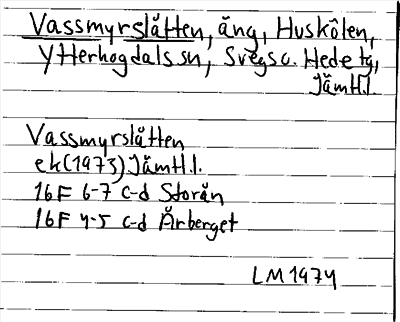 Vassmyrslåtten, äng, Huskölen,
Ytterhogdals sn, Svegs o. Hede tg,
Jämtl.l
Vassmyrslåtten
ek (1973) Jämtl.l.
16F 6-7 c-d Storån
16F 4-5 c-d Årberget
LM 1974